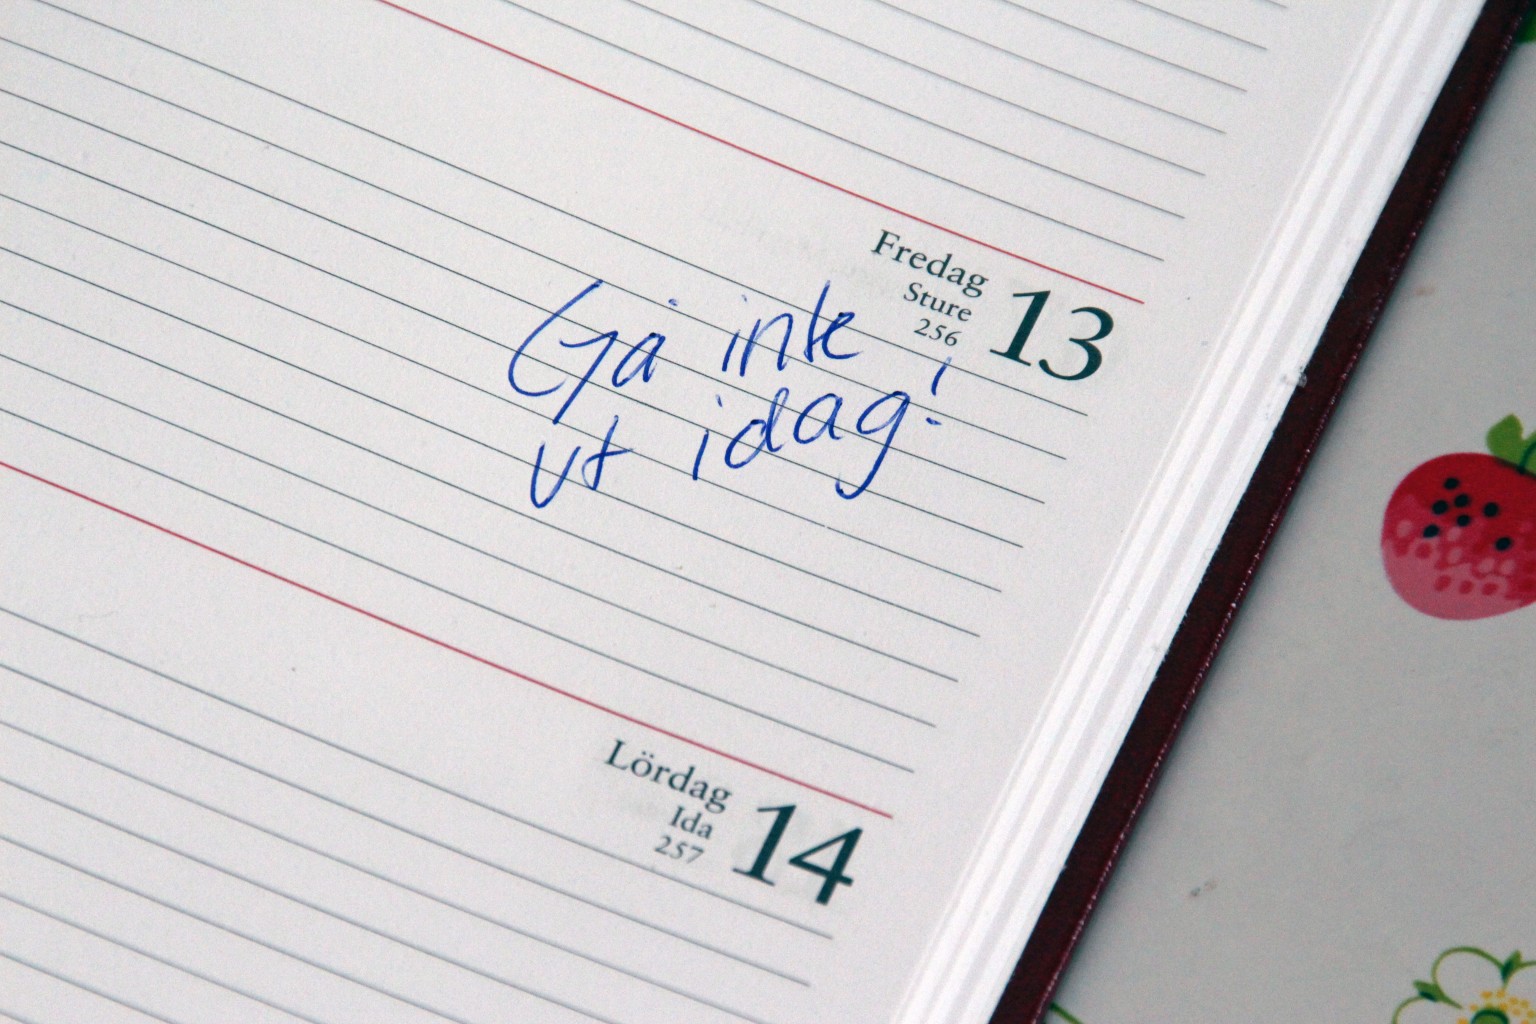 Fredag
Sture
256
13
Gå inte
ut idag!
Lördag
Ida
257
14